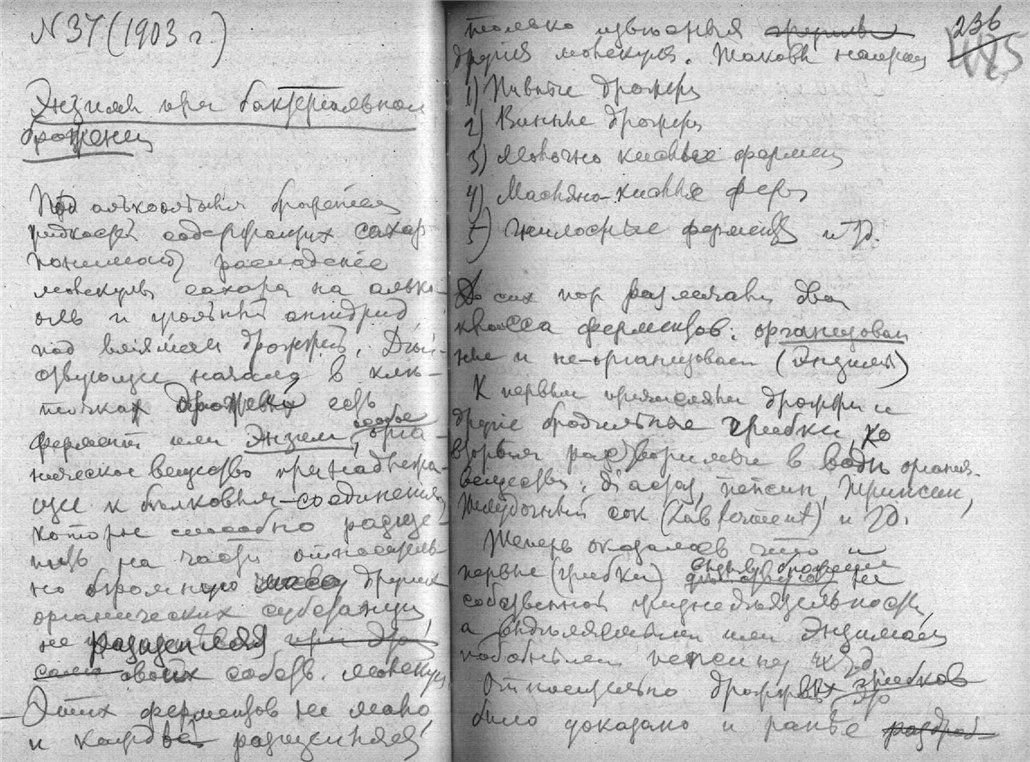 N 37 (1903 г.)
Энзима при бактерьяльном
брожении
Под алькоольным брожением
жидкостей содержащих сахар
понимают распадение
молекулы сахара на алько-
оль и угольный ангидрид
под влиянием дрожжей.
начало в клет-
точках дрожжевых есть
фермент или Энзим, особое орга-
ническое вещество принадлежа-
щее к белковым соединениям
которые способно расще-
пить на части относитель
но огромную массу других
органических субстанций,
не расщепляя при
само своих собств. молекул
Этих ферментов не мало,
и каждый расщепляет
236
только известныя
другия молекулы. Таковы например
1) Пивные дрожжи
2) Винные дрожжи
3) Молочно кислые фермен
4) Масляно-кислые фер
5) Гнилостные ферменты и т.д.
До сих пор различали два
класса ферментов: организован
ные и не-организован (Энзимы)
К первым причисляли дрожжи и
другие бродильные грибки, ко
вторым растворимые в воде органич.
вещества: диастаз, пепсин, трипсин,
желудочный сок (Lab ferment) и т.д.
Теперь оказалось что и
первые (грибки) брожение не
собственной жизнедеятельностью,
а выделяемыми ими Энзимами
подобными пепсину и т.д.
Относительно дрожжевых грибков это
было доказано и раньше